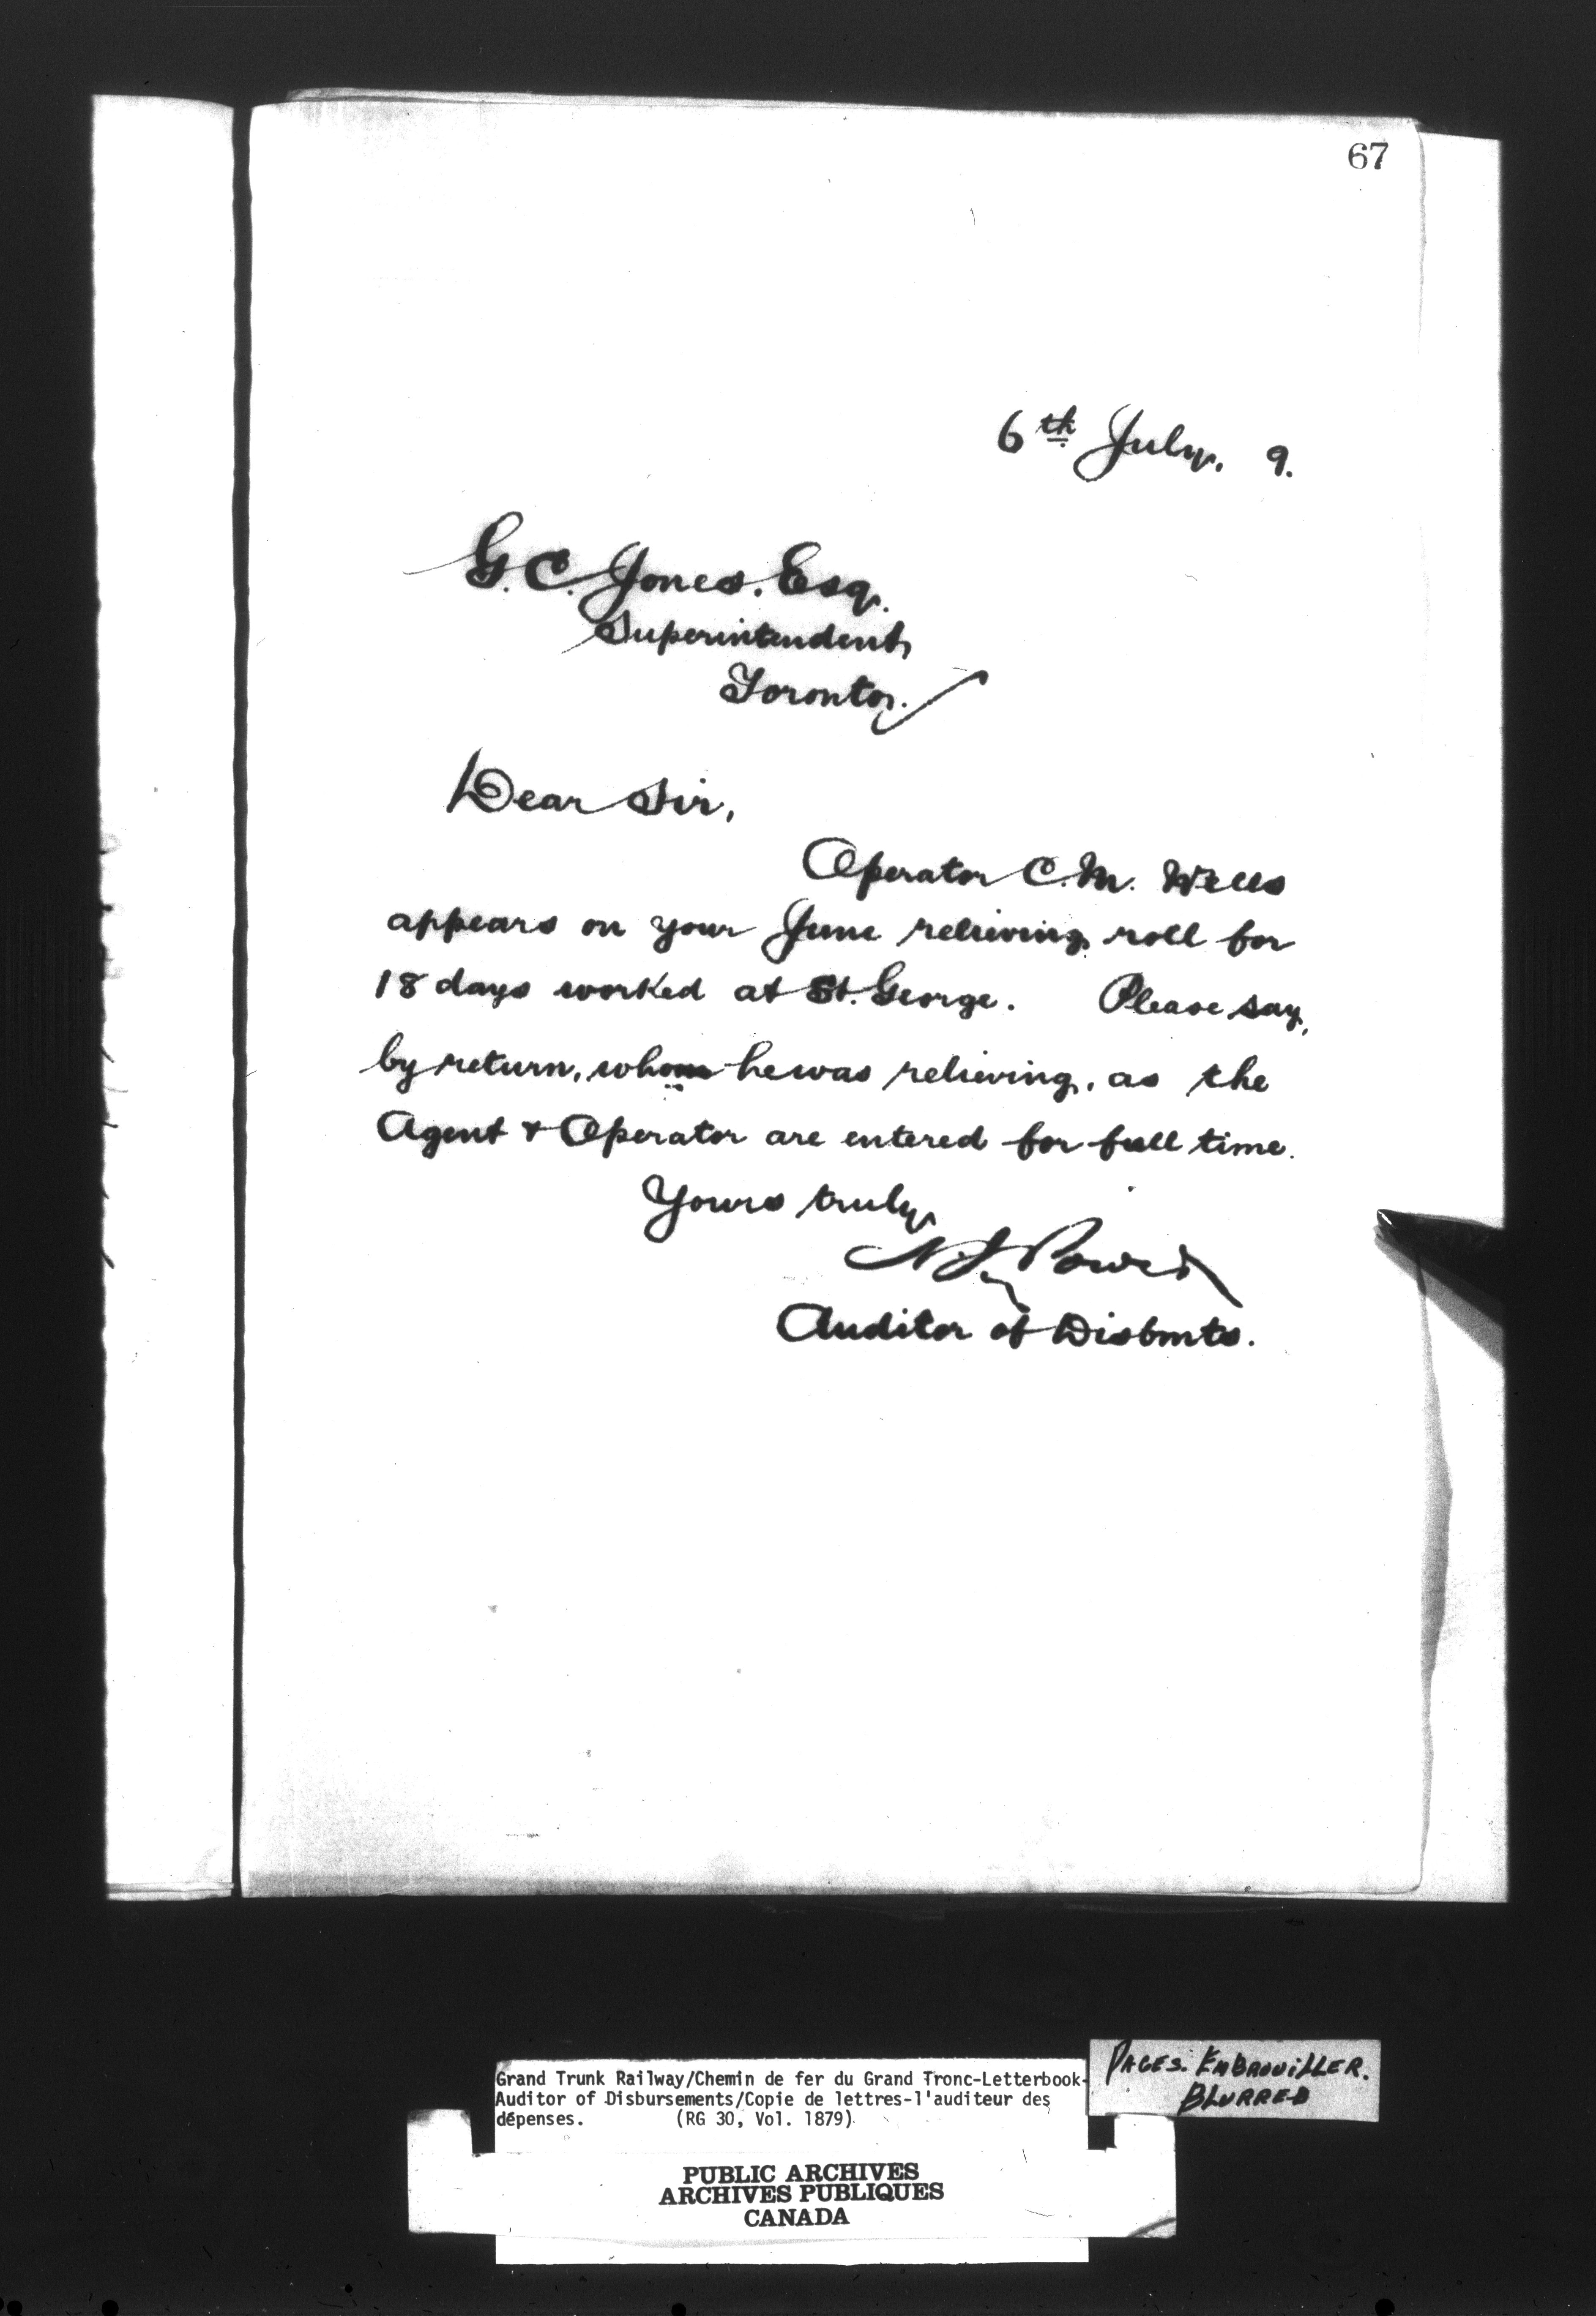 67
6th July. 9.
G. C. Jones. Esq.
Superintendent
Toronto.
Dear Sir,
Operator C. M. Wells
appears on your June relieving roll for
18 days worked at St. George. Please say,
by return, whom he was relieving, as the
Agent & Operator are entered for full time.
Yours truly
N. J. Power
Auditor of Disbmts.
Grand Trunk Railway/Chemin de fer du Grand Tronc-Letterbook-
Auditor of Disbursements/Copie de lettres-l'auditeur des
dépenses. (RG 30, Vol. 1879)
PAGES. EMBROUILLER.
BLURRED
PUBLIC ARCHIVES
ARCHIVES PUBLIQUES
CANADA